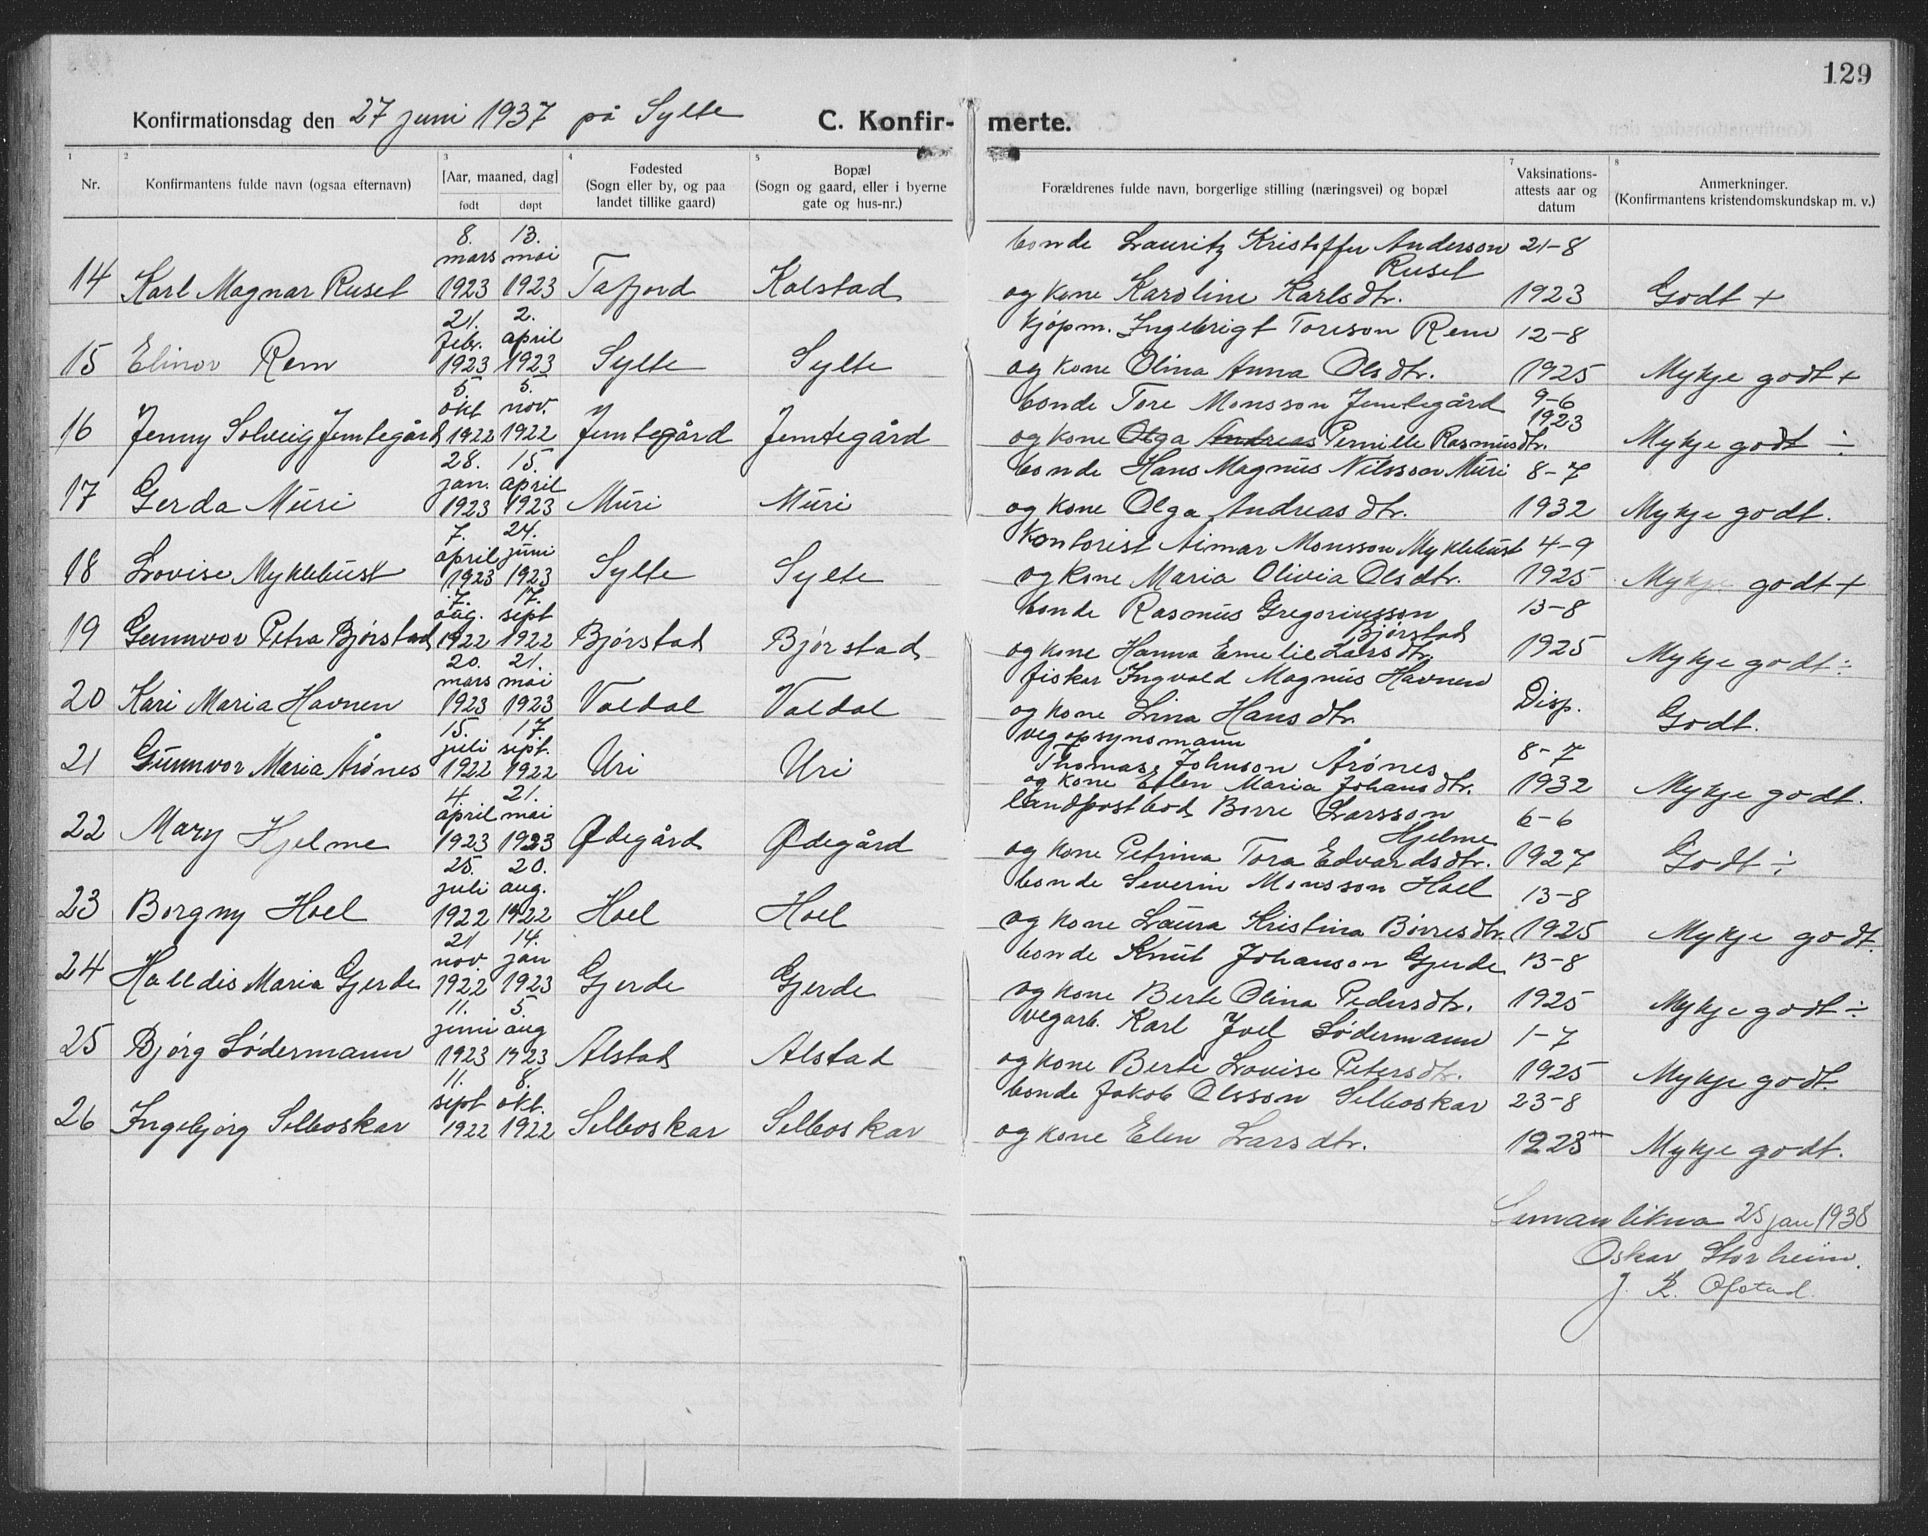 129
Konfirmationsdag den 27 juni 1937 på Sylte C. Konfir- merte.
1 2 3 4 5 7 8
Nr. Konfirmantens fulde navn (ogsaa efternavn) [Aar, maaned, dag] født døpt Fødested (Sogn eller by, og paa landet tillike gaard) Bopæl (Sogn og gaard, eller i byerne gate og hus-nr.) Forældrenes fulde navn, borgerlige stilling (næringsvei) og bopæl Vaksinations- attests aar og datum Anmerkninger. (Konfirmantens kristendomskundskap m. v.)
14 Karl Magnar Ruset 8. mars 1923 13. mai 1923 Tafjord Kolstad bonde Lauritz Kristoffer Anderson Ruset og kone Karoline Karlsdtr. 21-8 1923 Godt +
15 Elinor Rem 21. febr. 1923 2. april 1923 Sylte Sylte kjøpm. Ingebrigt Toreson Rem og kone Olina Anna Olsdtr. 12-8 1925 Mykje godt +
16 Jenny Solveig Jemtegård 5. okt 1922 5. nov. 1922 Jemtegård Jemtegård bonde Tore Monsson Jemtegård og kone Olga Andreas Pernille Rasmusdtr. 9-6 1923 Mykje godt ÷
17 Gerda Muri 28. jan. 1923 15. april 1923 Muri Muri bonde Hans Magnus Nilsson Muri og kone Olga Andreasdtr. 8-7 1932 Mykje godt.
18 Lovise Myklebust 7. april 1923 24. juni 1923 Sylte Sylte Kontorist Aimar Monsson Myklebust og kone Maria Olivia Olsdtr. 4-9 1925 Mykje godt +
19 Gunnvor Petra Bjørstad 7. aug. 1922 17. sept 1922 Bjørstad Bjørstad bonde Rasmus Gregoriusson Bjørstad og kone Hanna Emelie Larsdtr. 13-8 1925 Mykje godt ÷
20 Kari Maria Havnen 20. mars 1923 21. mai 1923 Valdal Valdal fiskar Ingvald Magnus Havnen og kone Lina Hansdtr. Disp. Godt.
21 Gunnvor Maria Årønes 15. juli 1922 17. sept. 1922 Uri Uri vegopsynsmann Thomas Johnson Årønes og kone Elen Maria Johansdtr. 8-7 1932 Mykje godt.
22 Mary Hjelme 4. april 1923 21. mai 1923 Ødegård Ødegård landpostbod Borre Larsson Hjelme og kone Petrina Tora Edvardsdtr. 6-6 1927 Godt ÷
23 Borgny Hoel 25. juli 1922 20. aug. 1922 Hoel Hoel bonde Severin Monsson Hoel og kone Laura Kristina Børresdtr. 13-8 1925 Mykje godt.
24 Halldis Maria Gjerde 21 nov. 1922 14. jan 1923 Gjerde Gjerde bonde Knut Johanson Gjerde og kone Berte Olina Pedersdtr. 13-8 1925 Mykje godt ÷
25 Bjørg Södermann 11. juni 1923 5. aug 1923 Alstad Alstad vegarb. Karl Joel Södermann og kone Berte Lovise Petersdtr. 1-7 1925 Mykje godt.
26 Ingebjørg Selboskar 11. sept 1922 8. okt. 1922 Selboskar Selboskar bonde Jakob Olsson Selboskar og kone Elen Larsdtr. 23-8 1923 Mykje godt.
Samanlikna 25 jan 1938
Oskar Storheim.
J. K. Ofstad.